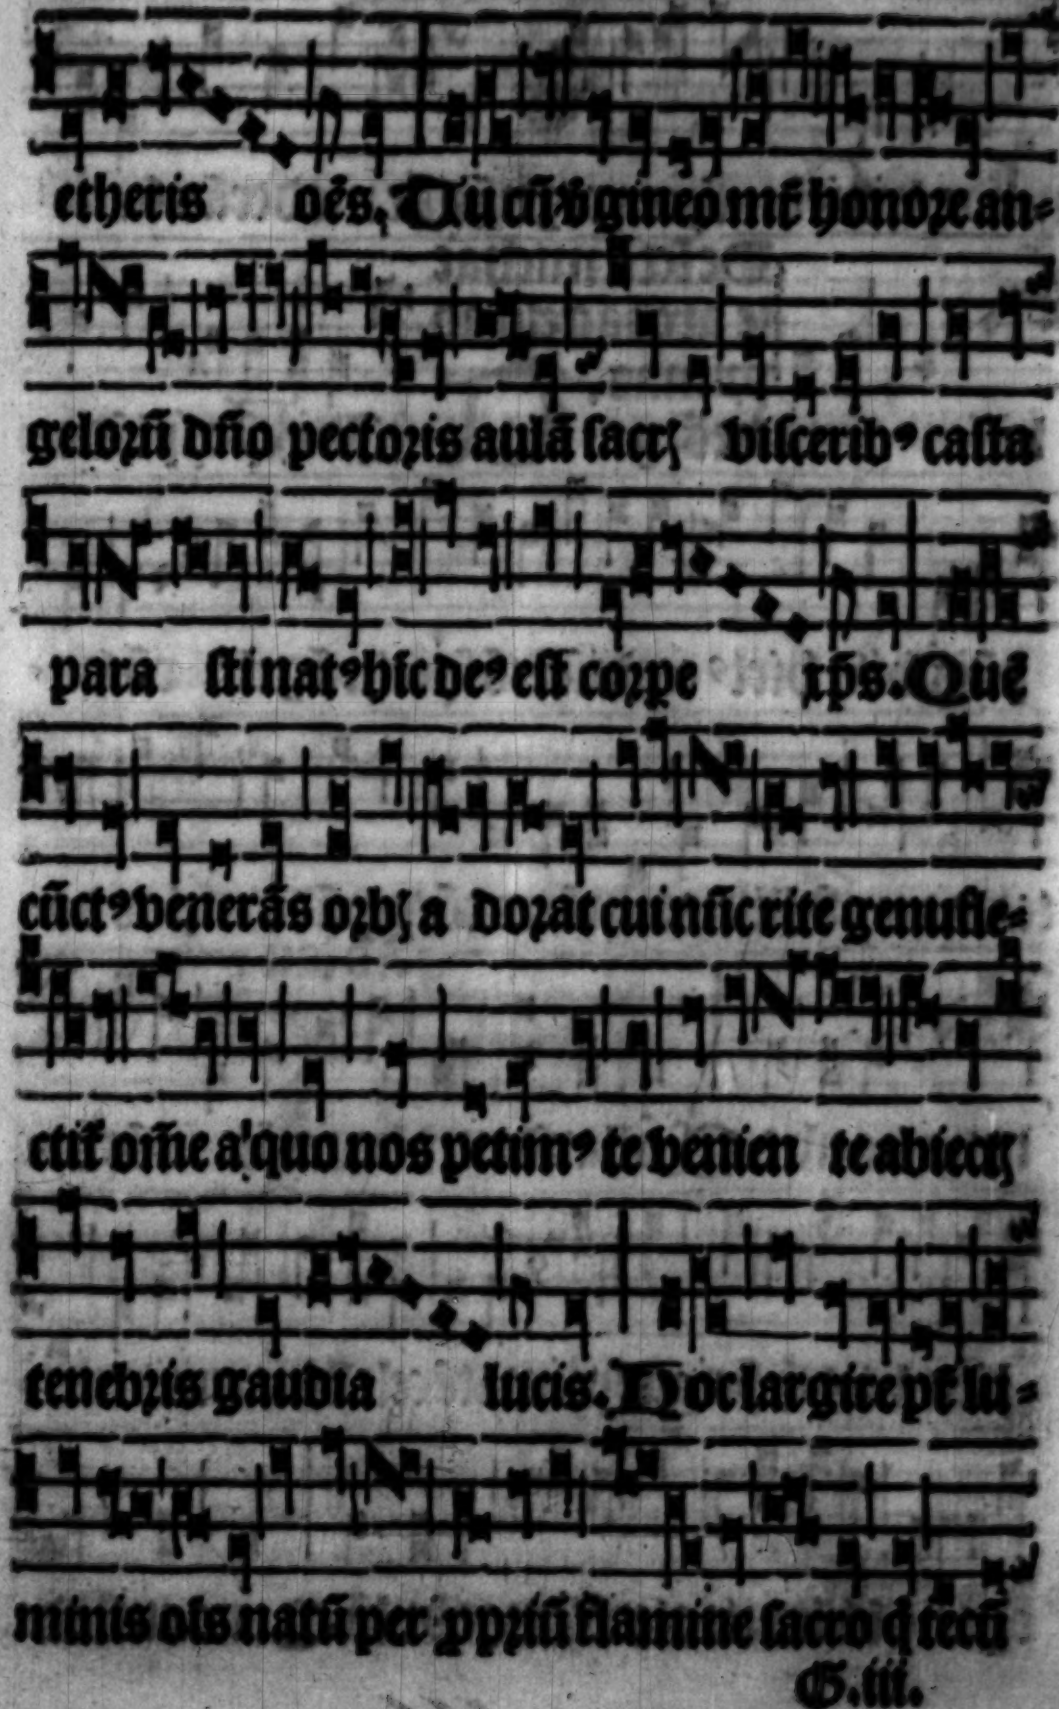 etheris oēs. Tu cū v̓gineo mr̄ honore an⸗
gelorū dn̄o pectoris aulā sacrꝭ visceribꝰ casta
para sti natꝰ hīc deꝰ est corpe xp̄s. Quē
cūctꝰ venerās orbꝭ a dorat cui nūc rite genufle⸗
ctit̄ om̄e a' quo nos petimꝰ te venien te abiectꝭ
tenebris gaudia lucis. Hoc largire pr̄ lu⸗
minis oīs natū per ꝓpriū flamine sacro q̇ tecū
G.iii.